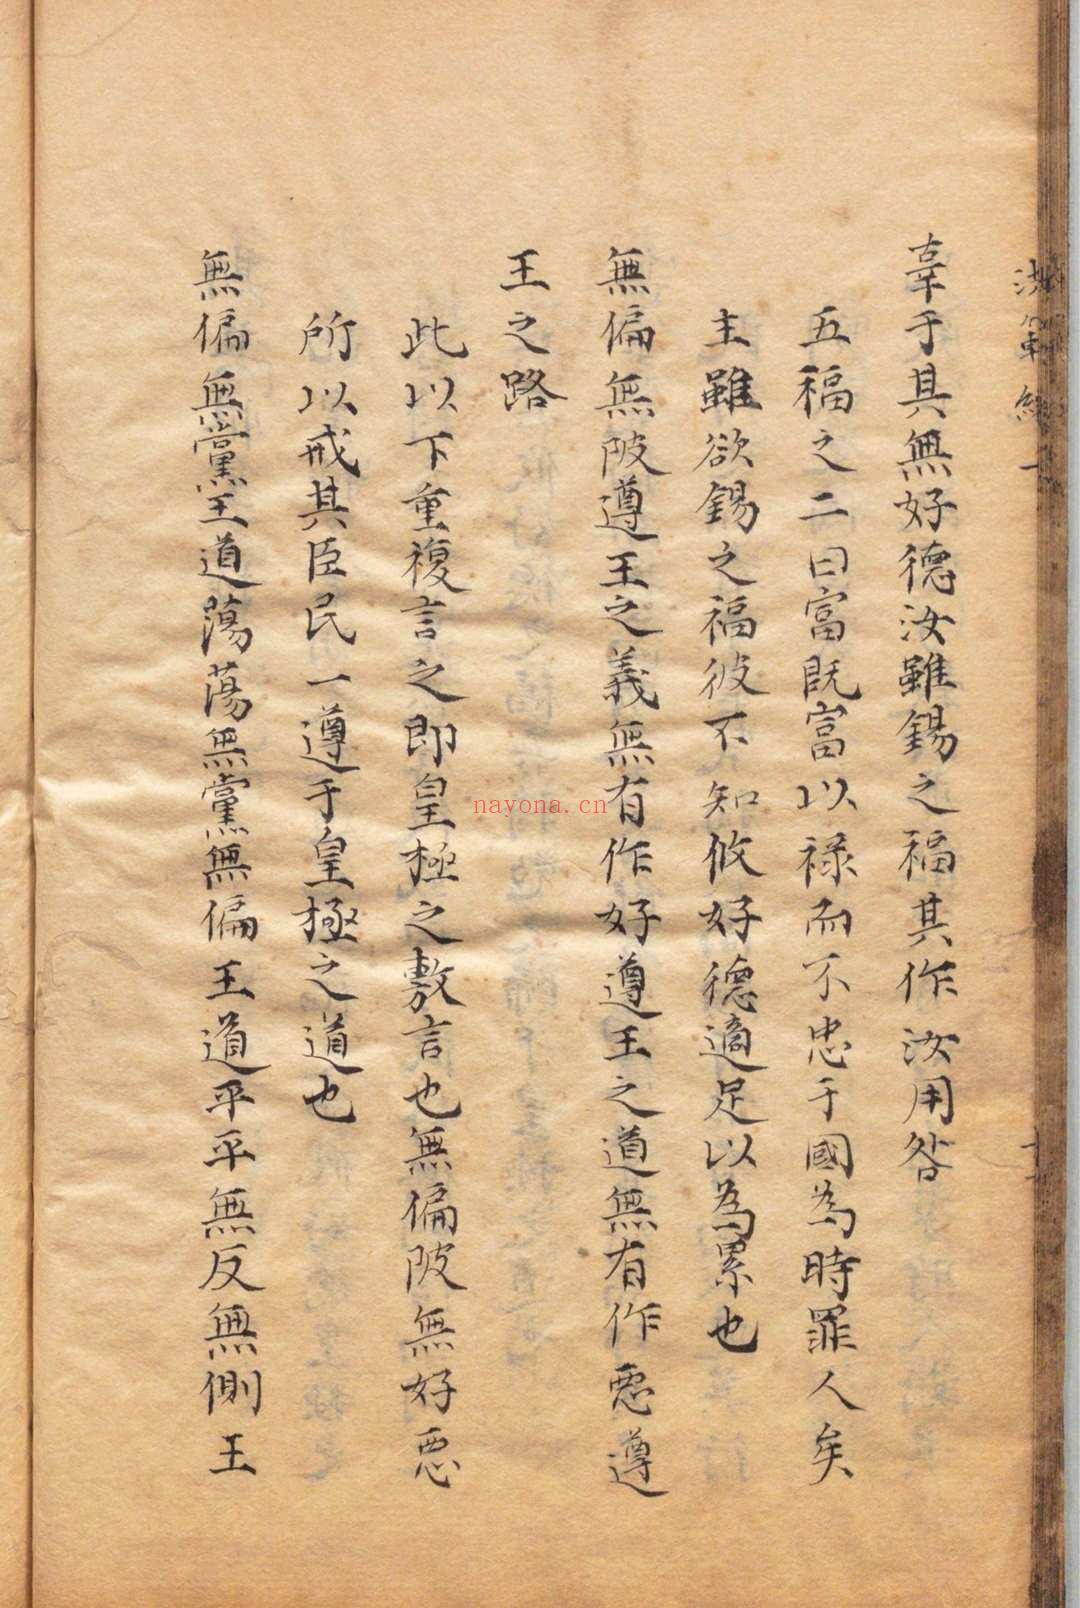 辜于其無好德汝雖錫之福其作汝用咎
五福之二曰富既富以祿而不忠于國為時罪人矣
主雖欲錫之福彼不知攸好德適足以為累也
無偏無陂遵王之義無有作好遵王之道無有作惡遵
王之路
此以下重複言之即皇極之敷言也無偏陂無好惡
所以戒其臣民一遵于皇極之道也
無偏無黨王道蕩蕩無黨無偏王道平平無反無側王
nayona.cn